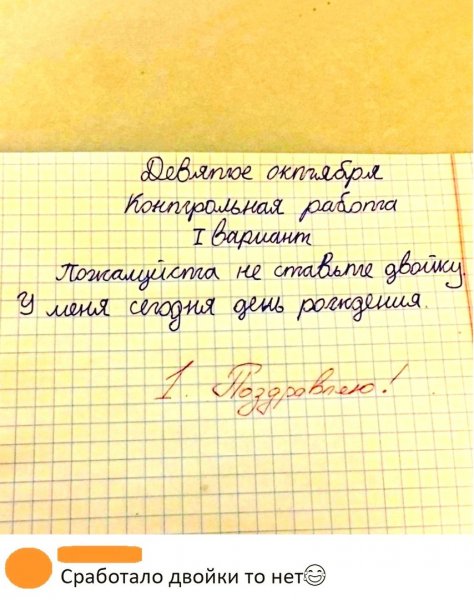 Девятое октября
Контрольная работа
I вариант
Пожалуйста не ставьте двойку.
У меня сегодня день рождения.
1. Поздравляю!
Сработало двойки то нет😂